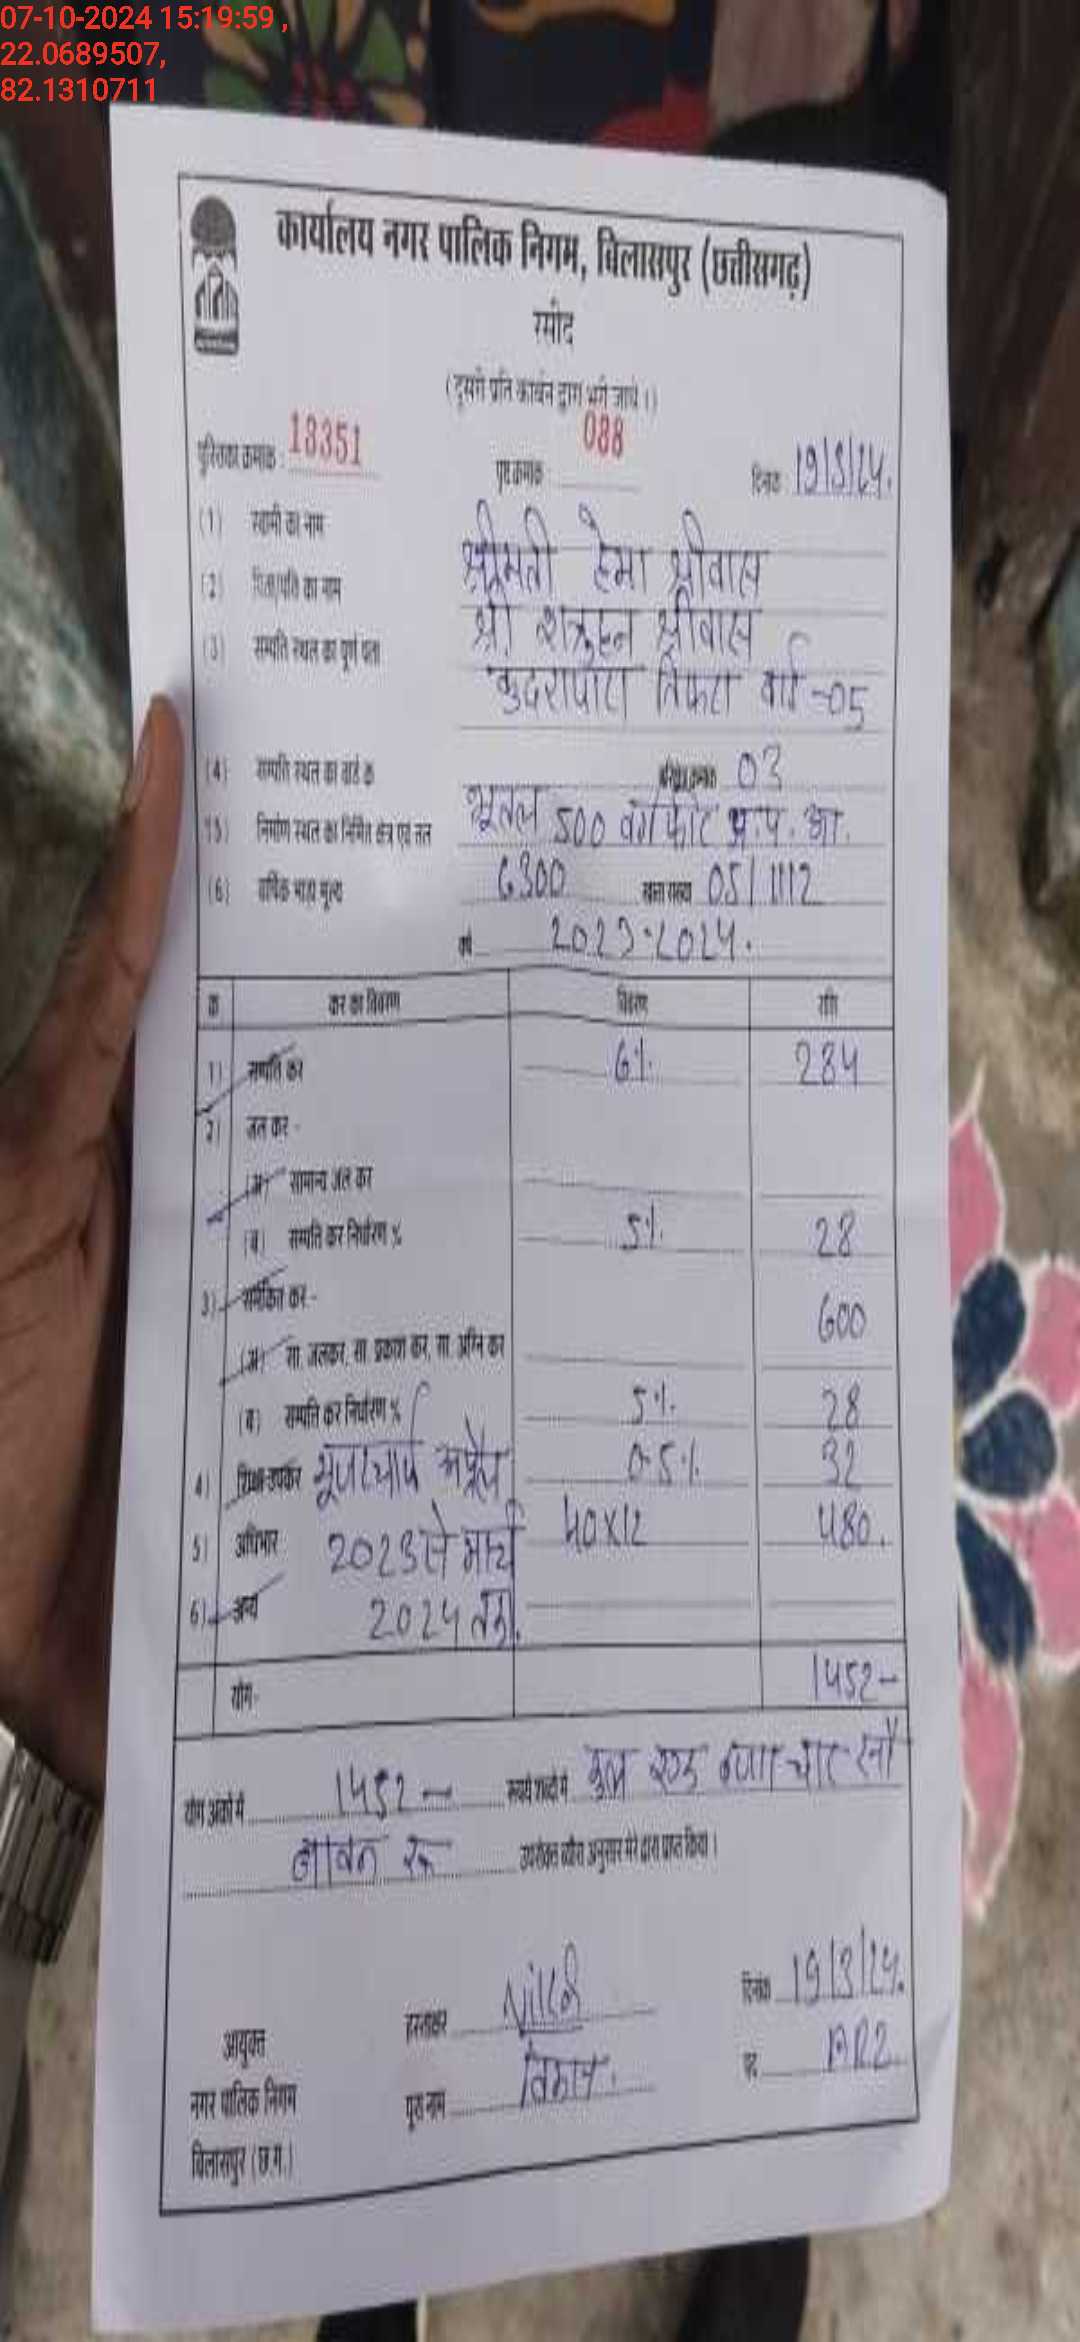 07-10-2024 15:19:59 ,
22.0689507,
82.1310711
कार्यालय नगर पालिक निगम, बिलासपुर (छत्तीसगढ़)
रसीद
(दूसरी प्रति कार्बन द्वारा भरी जाये ।)
पुस्तिका क्रमांक : 18351 पृष्ठ क्रमांक 088 दिनांक 19/3/24.
(1) स्वामी का नाम श्रीमती हेमा श्रीवास
(2) पिता/पति का नाम श्री शत्रुहन श्रीवास
(3) सम्पत्ति स्थल का पूर्ण पता कुदरापारा तिफरा वार्ड -05
(4) सम्पत्ति स्थल का वार्ड क्र 03
(5) निर्माण स्थल का निर्मित क्षेत्र एवं तल भूतल 500 वर्गफीट प्र.प. आ.
(6) वार्षिक भाड़ा मूल्य 6300 खाता संख्या 05/1112
वर्ष 2023-2024.
क्र कर का विवरण विवरण राशि
1) सम्पत्ति कर 6% 284
2) जल कर -
(अ) सामान्य जल कर
(ब) सम्पत्ति कर निर्धारण % 5% 28
3) समेकित कर - 600
(अ) सा. जलकर, सा. प्रकाश कर, सा. अग्नि कर
(ब) सम्पत्ति कर निर्धारण % 5% 28
4) शिक्षा-उपकर यूजरचार्ज अप्रैल 0.5% 32
5) अधिभार 2023 से मार्च 40X12 480.
6) अन्य 2024 तक.
योग- 1452-
योग अंको में 1452- रूपये शब्दों में कुल एक हजार चार सौ
बावन रू उपरोक्त ब्यौरा अनुसार मेरे द्वारा प्राप्त किया ।
दिनांक 19/3/24.
हस्ताक्षर
आयुक्त
पद ARI
नगर पालिक निगम
पूरा नाम
बिलासपुर (छ.ग.)